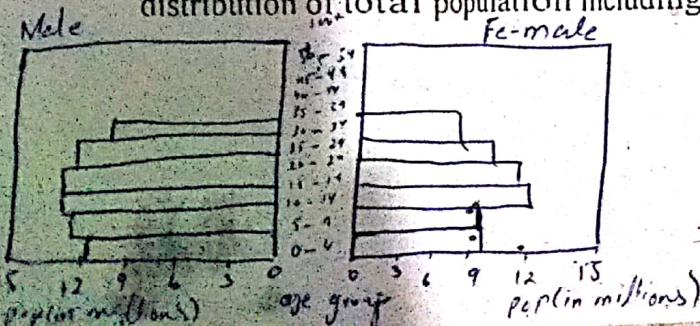 distribution of total population including
Male
Fe-male
35 - 39
30 - 34
25 - 29
20 - 24
15 - 19
10 - 14
5 - 9
0 - 4
5 12 9 6 3 0
0 3 6 9 12 15
pop(in millions)
age group
pop(in millions)